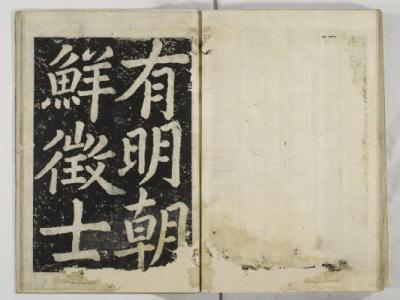 有明朝
鮮徵士